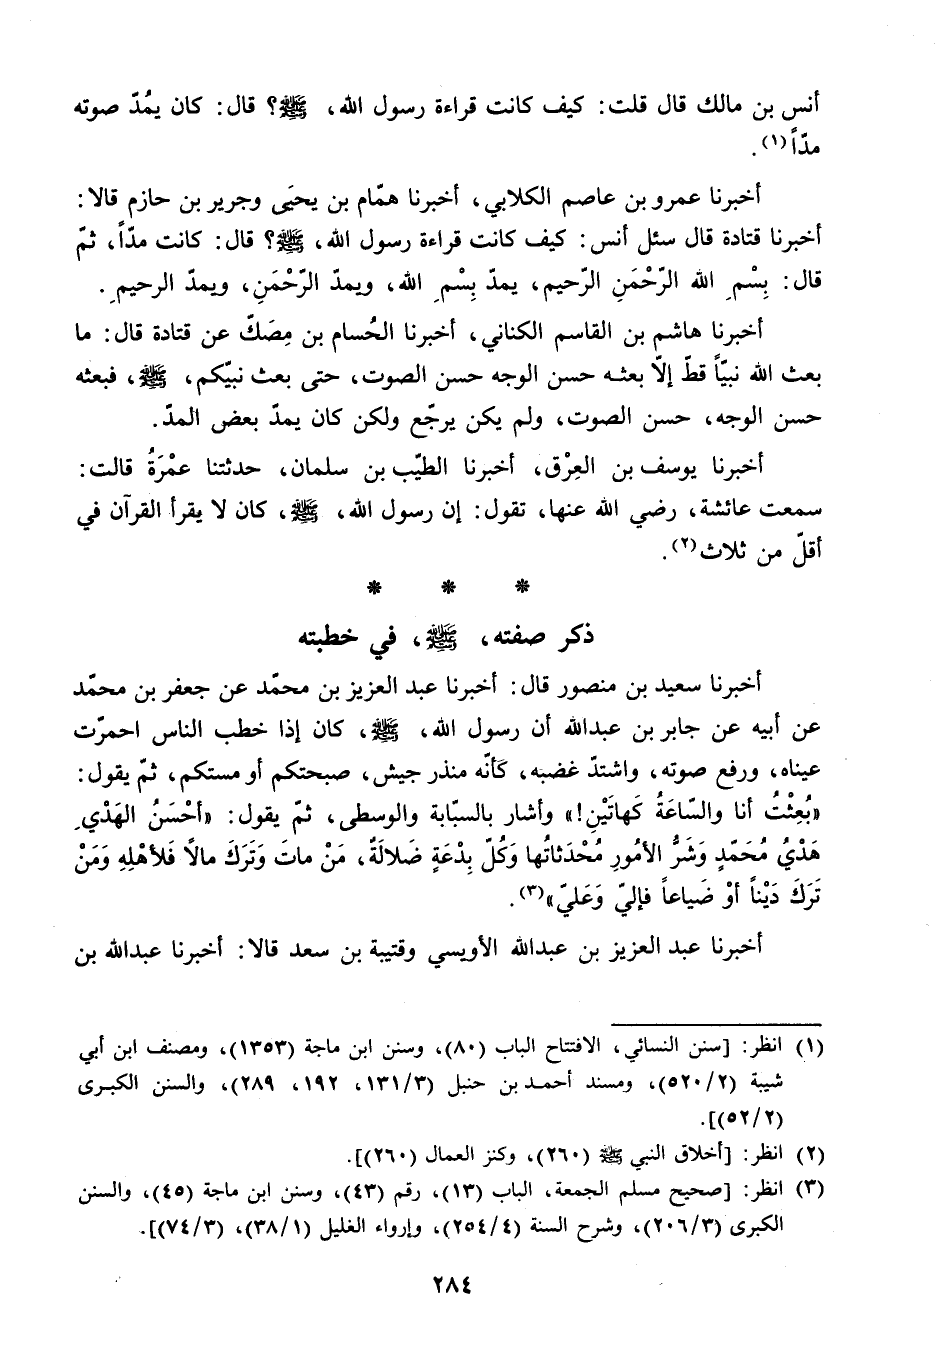 أنس بن مالك قال قلت: كيف كانت قراءة رسول الله، ﷺ؟ قال: كان يمُدّ صوته
مدّاً(١).
أخبرنا عمرو بن عاصم الكلابي، أخبرنا همّام بن يحيَى وجرير بن حازم قالا:
أخبرنا قتادة قال سئل أنس: كيف كانت قراءة رسول الله، ﷺ؟ قال: كانت مدّاً، ثمّ
قال: بِسْمِ الله الرّحْمَنِ الرّحيم، يمدّ بِسْمِ الله، ويمدّ الرّحْمَنِ، ويمدّ الرحيمِ.
أخبرنا هاشم بن القاسم الكناني، أخبرنا الحُسام بن مِصَكّ عن قتادة قال: ما
بعث الله نبيّاً قطّ إلّا بعثه حسن الوجه حسن الصوت، حتى بعث نبيّكم، ﷺ، فبعثه
حسن الوجه، حسن الصوت، ولم يكن يرجّع ولكن كان يمدّ بعض المدّ.
أخبرنا يوسف بن العِرْق، أخبرنا الطيّب بن سلمان، حدثتنا عمْرَةُ قالت:
سمعت عائشة، رضي الله عنها، تقول: إن رسول الله، ﷺ، كان لا يقرأ القرآن في
أقلّ من ثلاث(٢).
* * *
ذكر صفته، ﷺ، في خطبته
أخبرنا سعيد بن منصور قال: أخبرنا عبد العزيز بن محمّد عن جعفر بن محمّد
عن أبيه عن جابر بن عبدالله أن رسول الله، ﷺ، كان إذا خطب الناس احمرّت
عيناه، ورفع صوته، واشتدّ غضبه، كَأنّه منذر جيش، صبحتكم أو مستكم، ثمّ يقول:
«بُعِثْتُ أنا والسّاعَةُ كَهاتَيْنِ!» وأشار بالسبّابة والوسطى، ثمّ يقول: «أحْسَنُ الهَدْيِ
هَدْيُ مُحَمّدٍ وَشَرُّ الأمُورِ مُحْدَثاتُها وَكُلّ بِدْعَةٍ ضَلالَةٌ، مَنْ ماتَ وَتَرَكَ مالاً فَلأهْلِهِ وَمَنْ
تَرَكَ دَيْناً أوْ ضَياعاً فإليّ وَعَليّ»(٣).
أخبرنا عبد العزيز بن عبدالله الأويسي وقتيبة بن سعد قالا: أخبرنا عبدالله بن
(١) انظر: [سنن النسائي، الافتتاح الباب (٨٠)، وسنن ابن ماجة (١٣٥٣)، ومصنف ابن أبي
شيبة (٥٢٠/٢)، ومسند أحمد بن حنبل (١٣١/٣، ١٩٢، ٢٨٩)، والسنن الكبرى
(٥٢/٢)].
(٢) انظر: [أخلاق النبي ﷺ (٢٦٠)، وكنز العمال (٢٦٠)].
(٣) انظر: [صحيح مسلم الجمعة، الباب (١٣)، رقم (٤٣)، وسنن ابن ماجة (٤٥)، والسنن
الكبرى (٢٠٦/٣)، وشرح السنة (٢٥٤/٤)، وإرواء الغليل (٣٨/١)، (٧٤/٣)].
٢٨٤